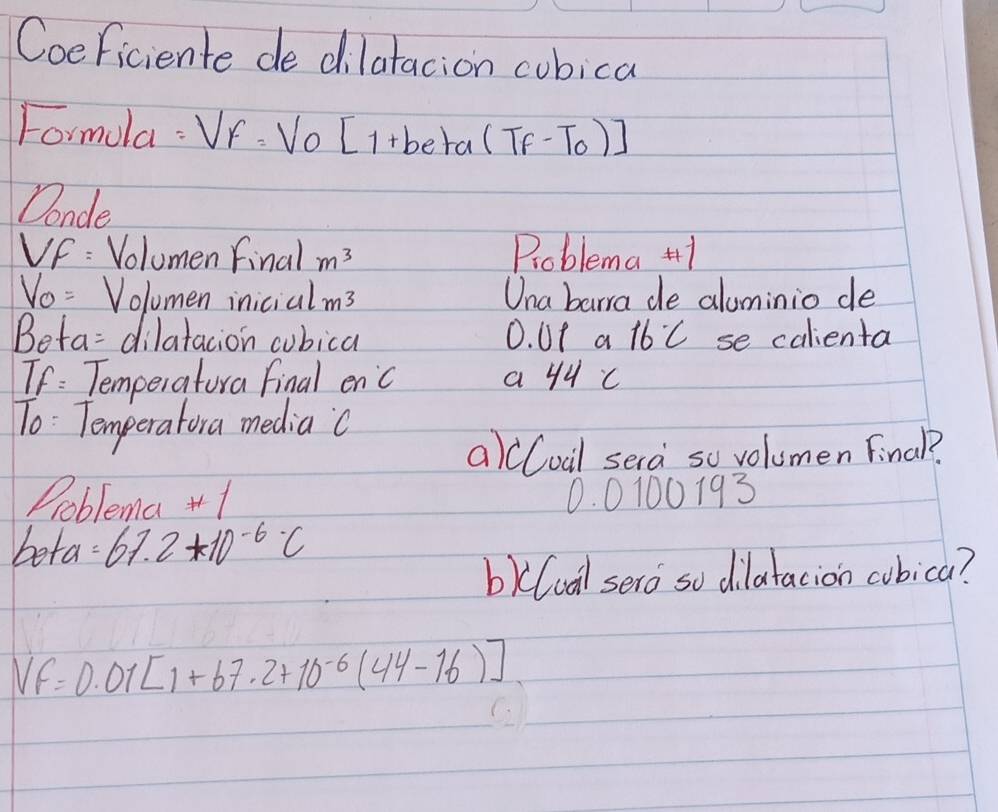 Coeficiente de dilatación cubica
Formula = Vf = Vo [1+beta (Tf-To)]
Donde
Vf = Volumen final m³
Vo = Volumen inicial m³
Beta = dilatación cubica
Tf = Temperatura final en °C
To = Temperatura media °C
Problema #1
beta = 67.2*10⁻⁶ °C
Vf = 0.01[1+67.2+10⁻⁶(44-16)]
Problema #1
Una barra de aluminio de
0.01 a 16°C se calienta
a 44 °C
a) ¿Cuál será su volumen final?
0.0100193
b) ¿Cuál será su dilatación cubica?